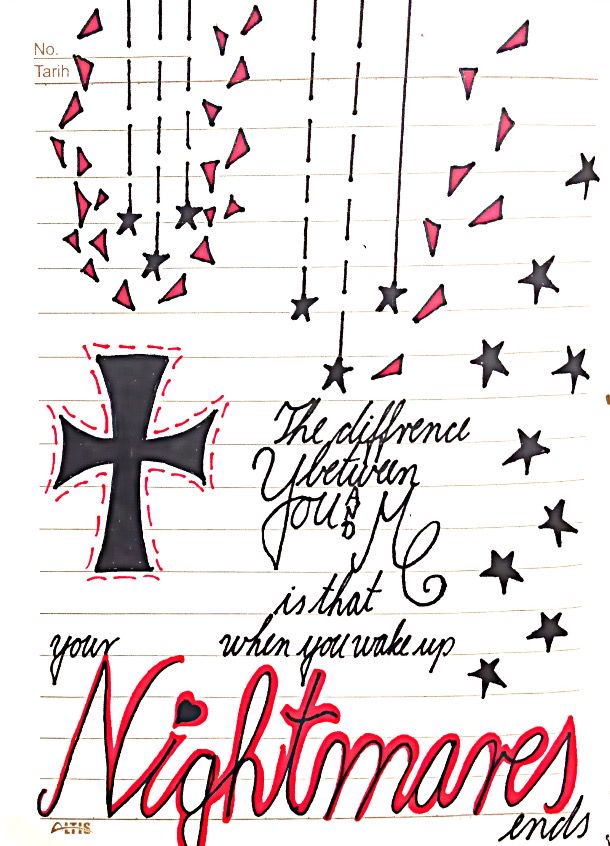 No.
Tarih
The diffrence
between
You AND Me
is that
your when you wake up
Nightmares
ends
ALTIS